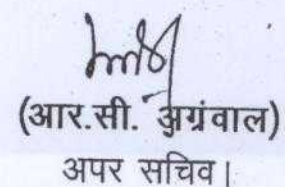 (आर.सी. अग्रंवाल)
अपर सचिव।